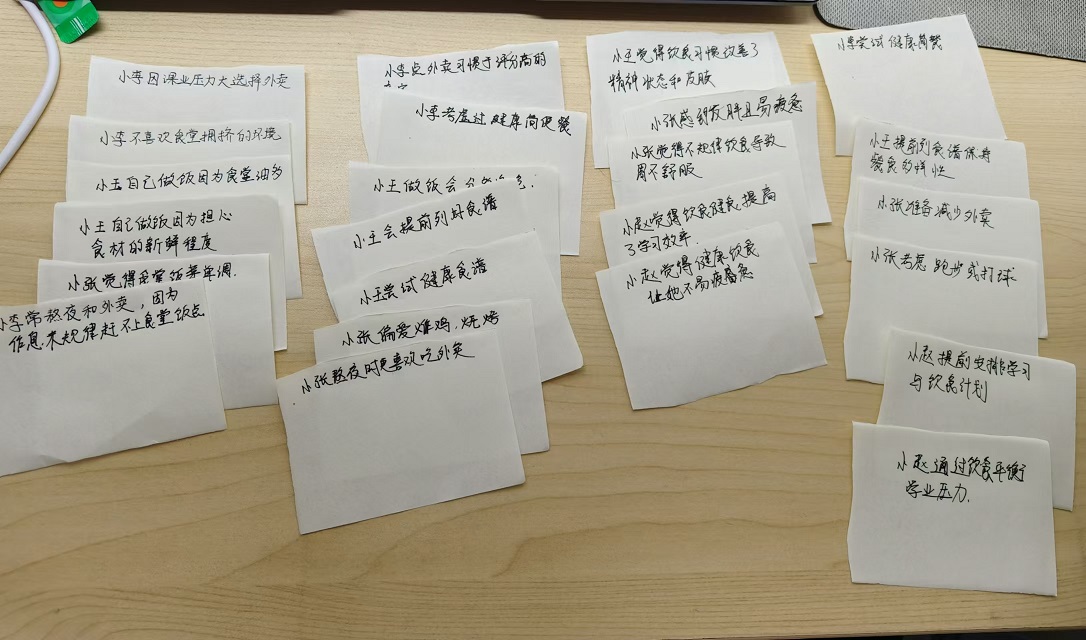 小李因课业压力大选择外卖
小李不喜欢食堂拥挤的环境
小王自己做饭因为食堂油多
小王自己做饭因为担心
食材的新鲜程度
小张觉得食堂饭菜单调.
小李常熬夜和外卖，因为
作息不规律赶不上食堂饭点
小李点外卖习惯于评分高的
小李考虑过健康简便餐
小王做饭会
小王会提前列好食谱
小王尝试健康食谱
小张偏爱炸鸡、烧烤
小张熬夜时更喜欢吃外卖
小王觉得饮食习惯改善了
精神状态和皮肤
小张感到发胖且易疲惫
小张觉得不规律饮食导致
胃不舒服
小赵觉得饮食健康提高
了学习效率.
小赵觉得健康饮食
让她不易疲惫
小李尝试健康简餐
小王提前列食谱保持
餐食多样性
小张准备减少外卖
小张考虑跑步或打球
小赵提前安排学习
与饮食计划
小赵通过饮食平衡
学业压力.